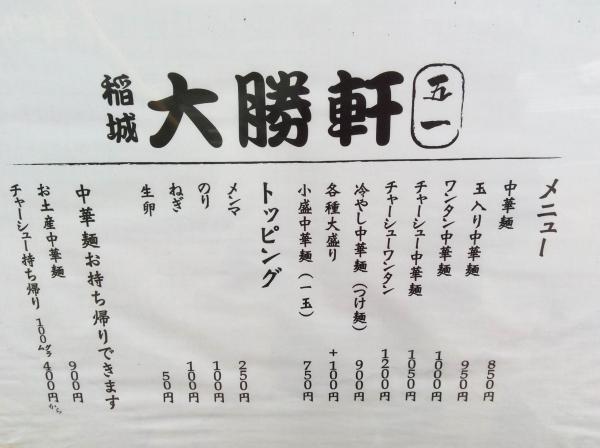 稲城
大勝軒
五一
メニュー
中華麺 850円
玉入り中華麺 950円
ワンタン中華麺 1000円
チャーシュー中華麺 1050円
チャーシューワンタン 1200円
冷やし中華麺（つけ麺） 900円
各種大盛り +100円
小盛中華麺（一玉） 750円
トッピング
メンマ 250円
のり 100円
ねぎ 100円
生卵 50円
中華麺お持ち帰りできます
お土産中華麺 900円
チャーシュー持ち帰り 100グラム 400円から